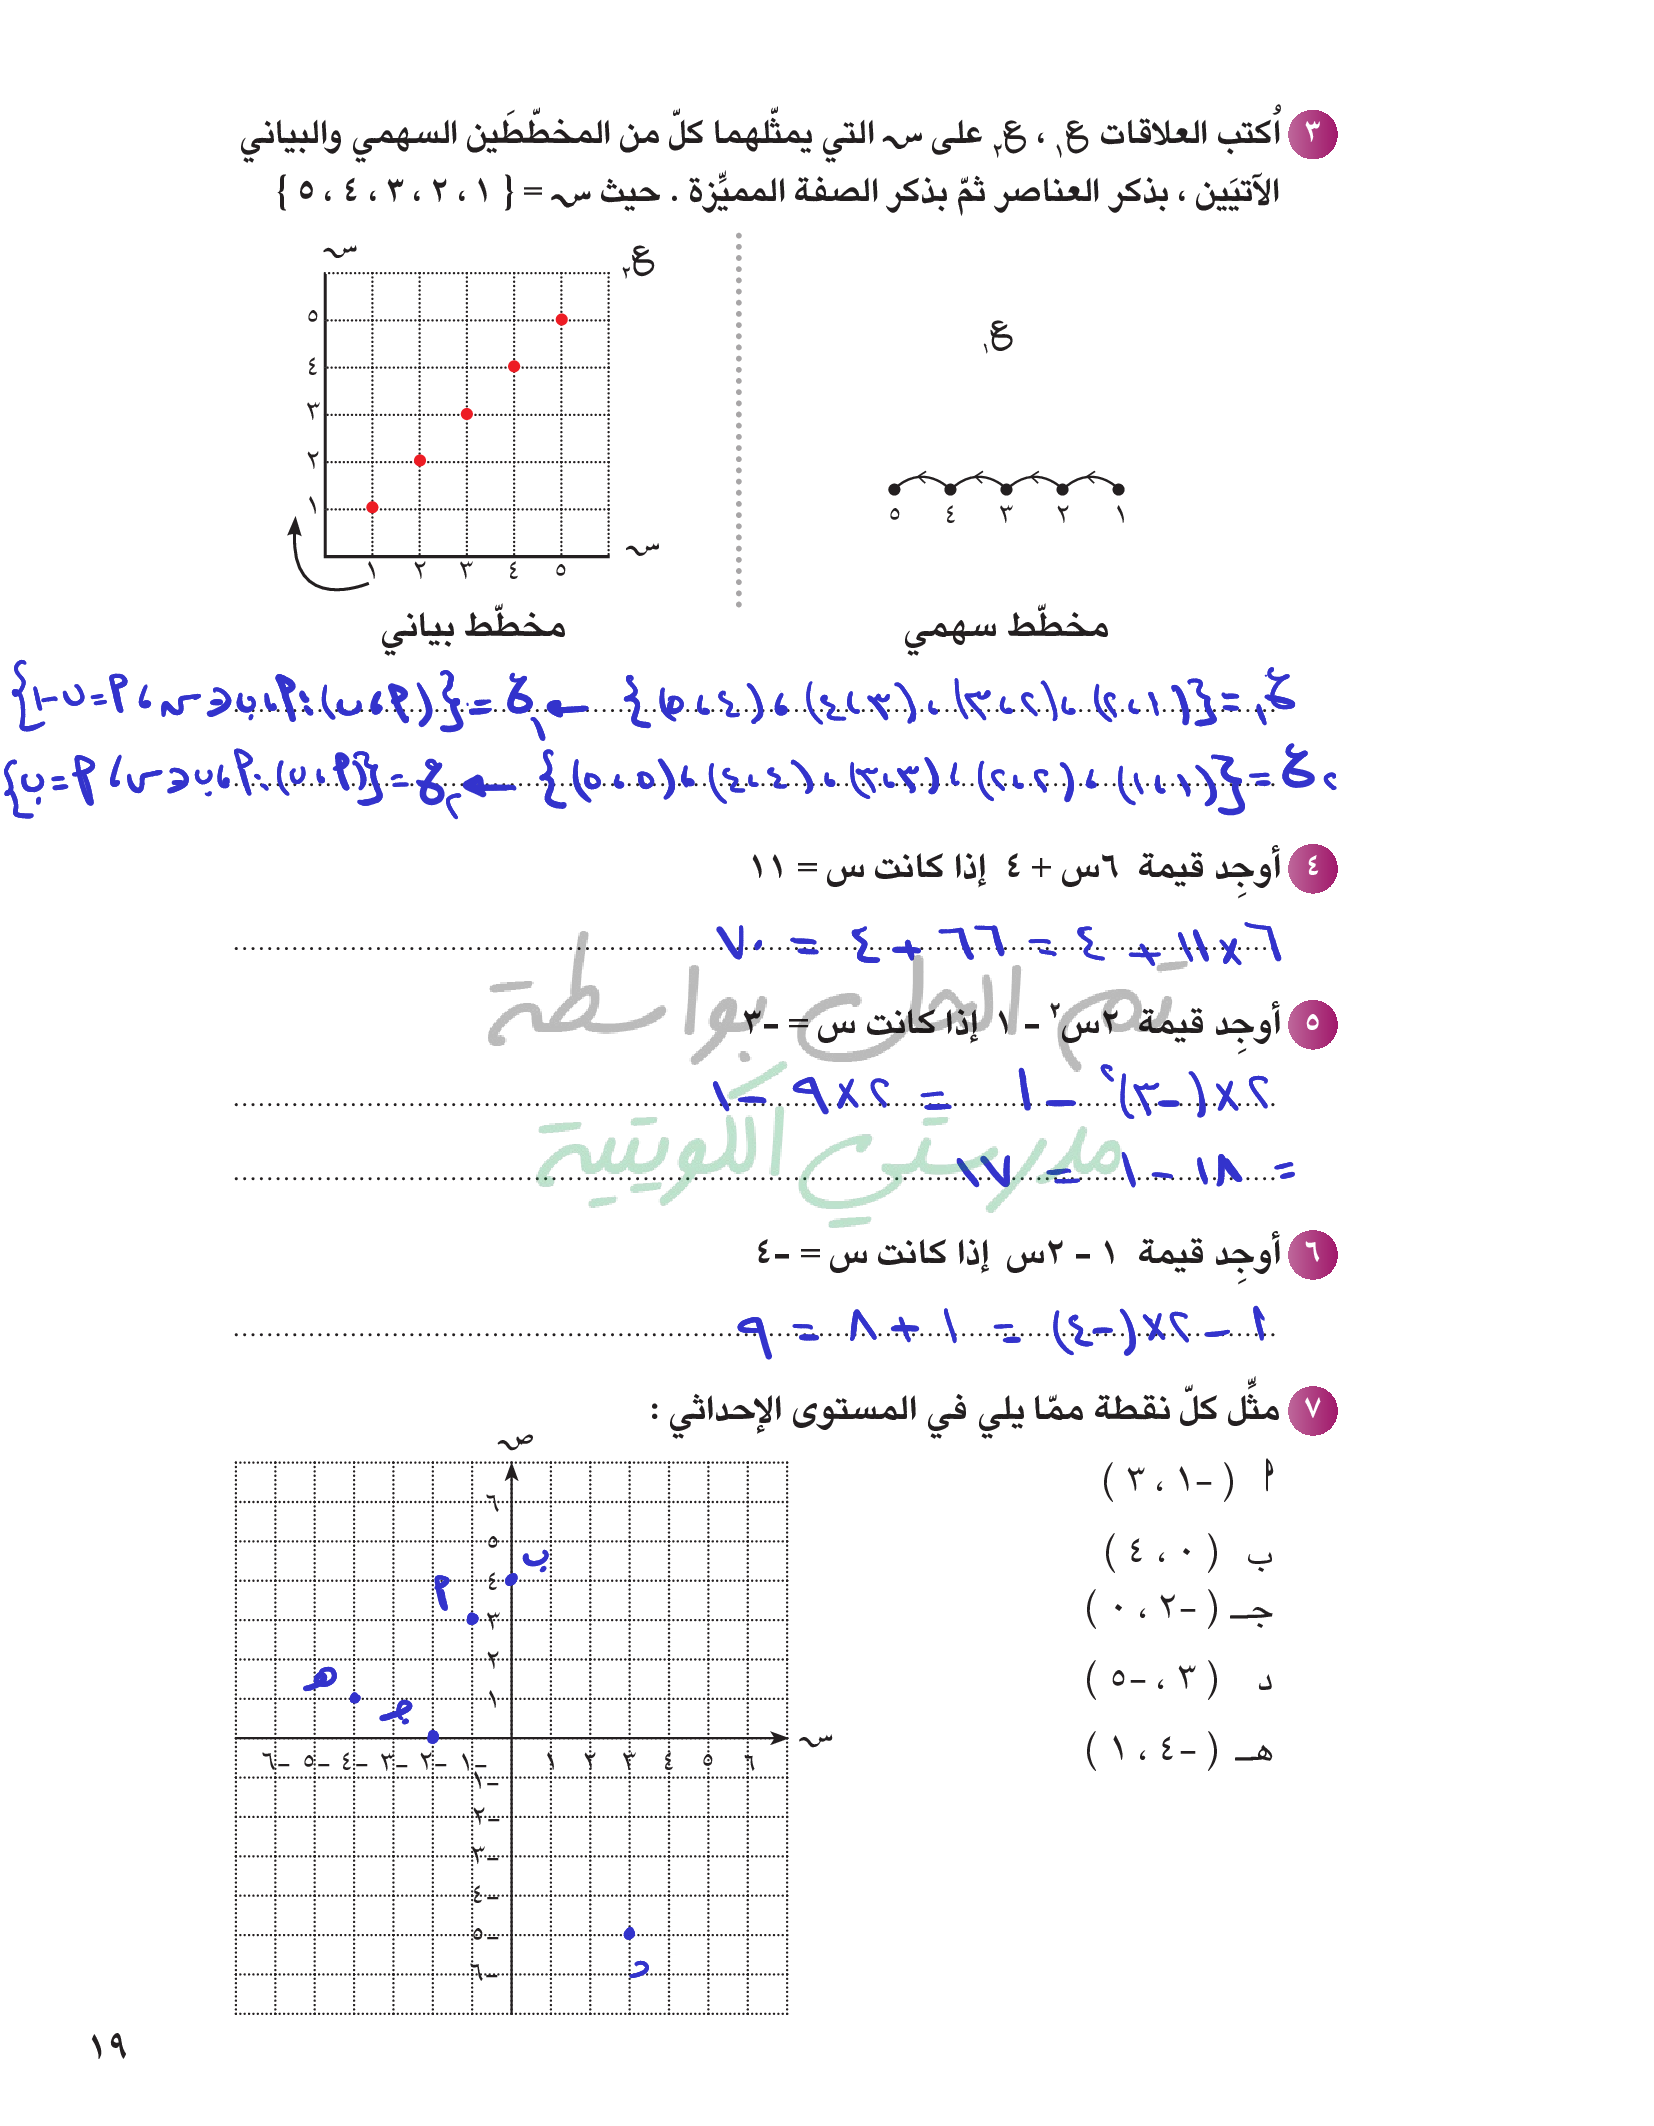 ٣ اُكتب العلاقات ع١ ، ع٢ على سـ التي يمثّلهما كلّ من المخطّطَين السهمي والبياني
الآتيَين ، بذكر العناصر ثمّ بذكر الصفة المميِّزة . حيث سـ = { ١ ، ٢ ، ٣ ، ٤ ، ٥ }
ع١
١ ٢ ٣ ٤ ٥
مخطّط سهمي
ع٢
سـ
٥
٤
٣
٢
١
سـ
١ ٢ ٣ ٤ ٥
مخطّط بياني
ع١ = {(١،٢)،(٢،٣)،(٣،٤)،(٤،٥)} ← ع١ = {(أ،ب):أ،ب∈س،أ=ب-١}
ع٢ = {(١،١)،(٢،٢)،(٣،٣)،(٤،٤)،(٥،٥)} ← ع٢ = {(أ،ب):أ،ب∈س،أ=ب}
٤ أوجِد قيمة ٦س + ٤ إذا كانت س = ١١
٦×١١ + ٤ = ٦٦ + ٤ = ٧٠
تم الحل بواسطة
٥ أوجِد قيمة ٢س٢ - ١ إذا كانت س = -٣
٢×(-٣)٢ - ١ = ٢×٩ - ١
مدرستي الكويتية
= ١٨ - ١ = ١٧
٦ أوجِد قيمة ١ - ٢س إذا كانت س = -٤
١ - ٢×(-٤) = ١ + ٨ = ٩
٧ مثِّل كلّ نقطة ممّا يلي في المستوى الإحداثي :
أ ( -١ ، ٣ )
ب ( ٠ ، ٤ )
جـ ( -٢ ، ٠ )
د ( ٣ ، -٥ )
هـ ( -٤ ، ١ )
صـ
٦
٥
ب
٤
أ
٣
٢
هـ
١
جـ
سـ
-٦ -٥ -٤ -٣ -٢ -١ ١ ٢ ٣ ٤ ٥ ٦
-١
-٢
-٣
-٤
-٥
د
-٦
١٩